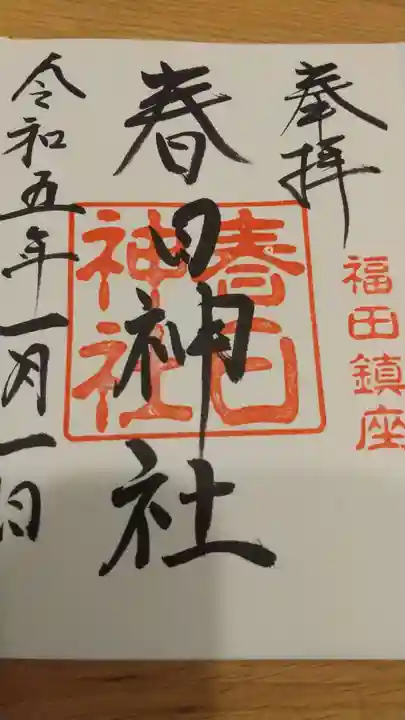 奉拝
福田鎮座
春日神社
春日
神社
令和五年一月一日